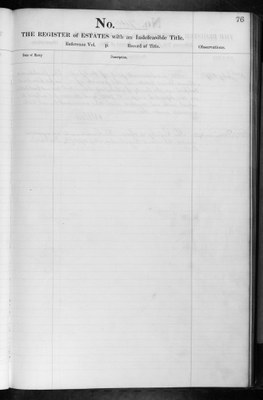 76
No.
THE REGISTER of ESTATES with an Indefeasible Title.
Reference Vol. p Record of Title.
Observations.
Date of Entry.
Description.